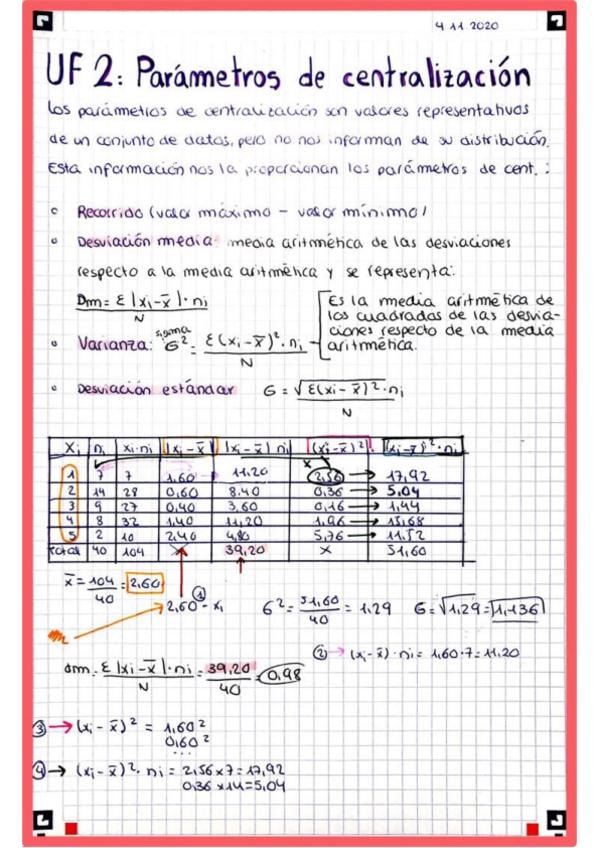 4 11 2020
UF 2: Parámetros de centralización
Los parámetros de centralización son valores representativos
de un conjunto de datos, pero no nos informan de su distribución.
Esta información nos la proporcionan los parámetros de cent. :
Recorrido (valor máximo - valor mínimo)
Desviación media: media aritmética de las desviaciones
respecto a la media aritmética y se representa:
Dm = Σ |xi - x̅| · ni / N
Es la media aritmética de
los cuadrados de las desvia-
ciones respecto de la media
aritmética.
sigma
Varianza: σ² = Σ (xi - x̅)² · ni / N
Desviación estándar σ = √ Σ(xi - x̅)² · ni / N
Xi ni xi·ni |xi - x̅| |xi - x̅| ni (xi - x̅)² (xi - x̅)² · ni
1 7 7 1,60 11,20 2,56 → 17,92
2 14 28 0,60 8,40 0,36 → 5,04
3 9 27 0,40 3,60 0,16 → 1,44
4 8 32 1,40 11,20 1,96 → 15,68
5 2 10 2,40 4,80 5,76 → 11,52
total 40 104 x 39,20 x 51,60
x̅ = 104 / 40 = 2,60
① 2,60 - xi
σ² = 51,60 / 40 = 1,29 σ = √1,29 = 1,136
② → (xi - x̅) · ni = 1,60·7 = 11,20
dm = Σ |xi - x̅| · ni / N = 39,20 / 40 = 0,98
③ → (xi - x̅)² = 1,60²
0,60²
...
④ → (xi - x̅)² · ni = 2,56 x 7 = 17,92
0,36 x 14 = 5,04